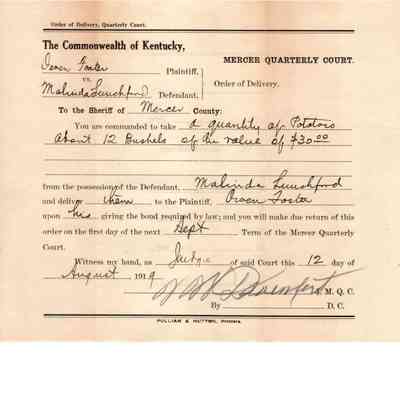 Order of Delivery, Quarterly Court.
The Commonwealth of Kentucky,
Owen Foster Plaintiff,
MERCER QUARTERLY COURT.
vs.
Order of Delivery.
Malinda Lunchford Defendant,
To the Sheriff of Mercer County:
You are commanded to take a quantity of Potatoes
About 12 Bushels of the value of $30.00
from the possession of the Defendant, Malinda Lunchford
and deliver them to the Plaintiff, Owen Foster
upon his giving the bond required by law; and you will make due return of this
order on the first day of the next Sept Term of the Mercer Quarterly
Court.
Witness my hand, as Judge of said Court this 12 day of
August 1919
M. Q. C.
By D. C.
PULLIAM & HUTTON, PRINTERS